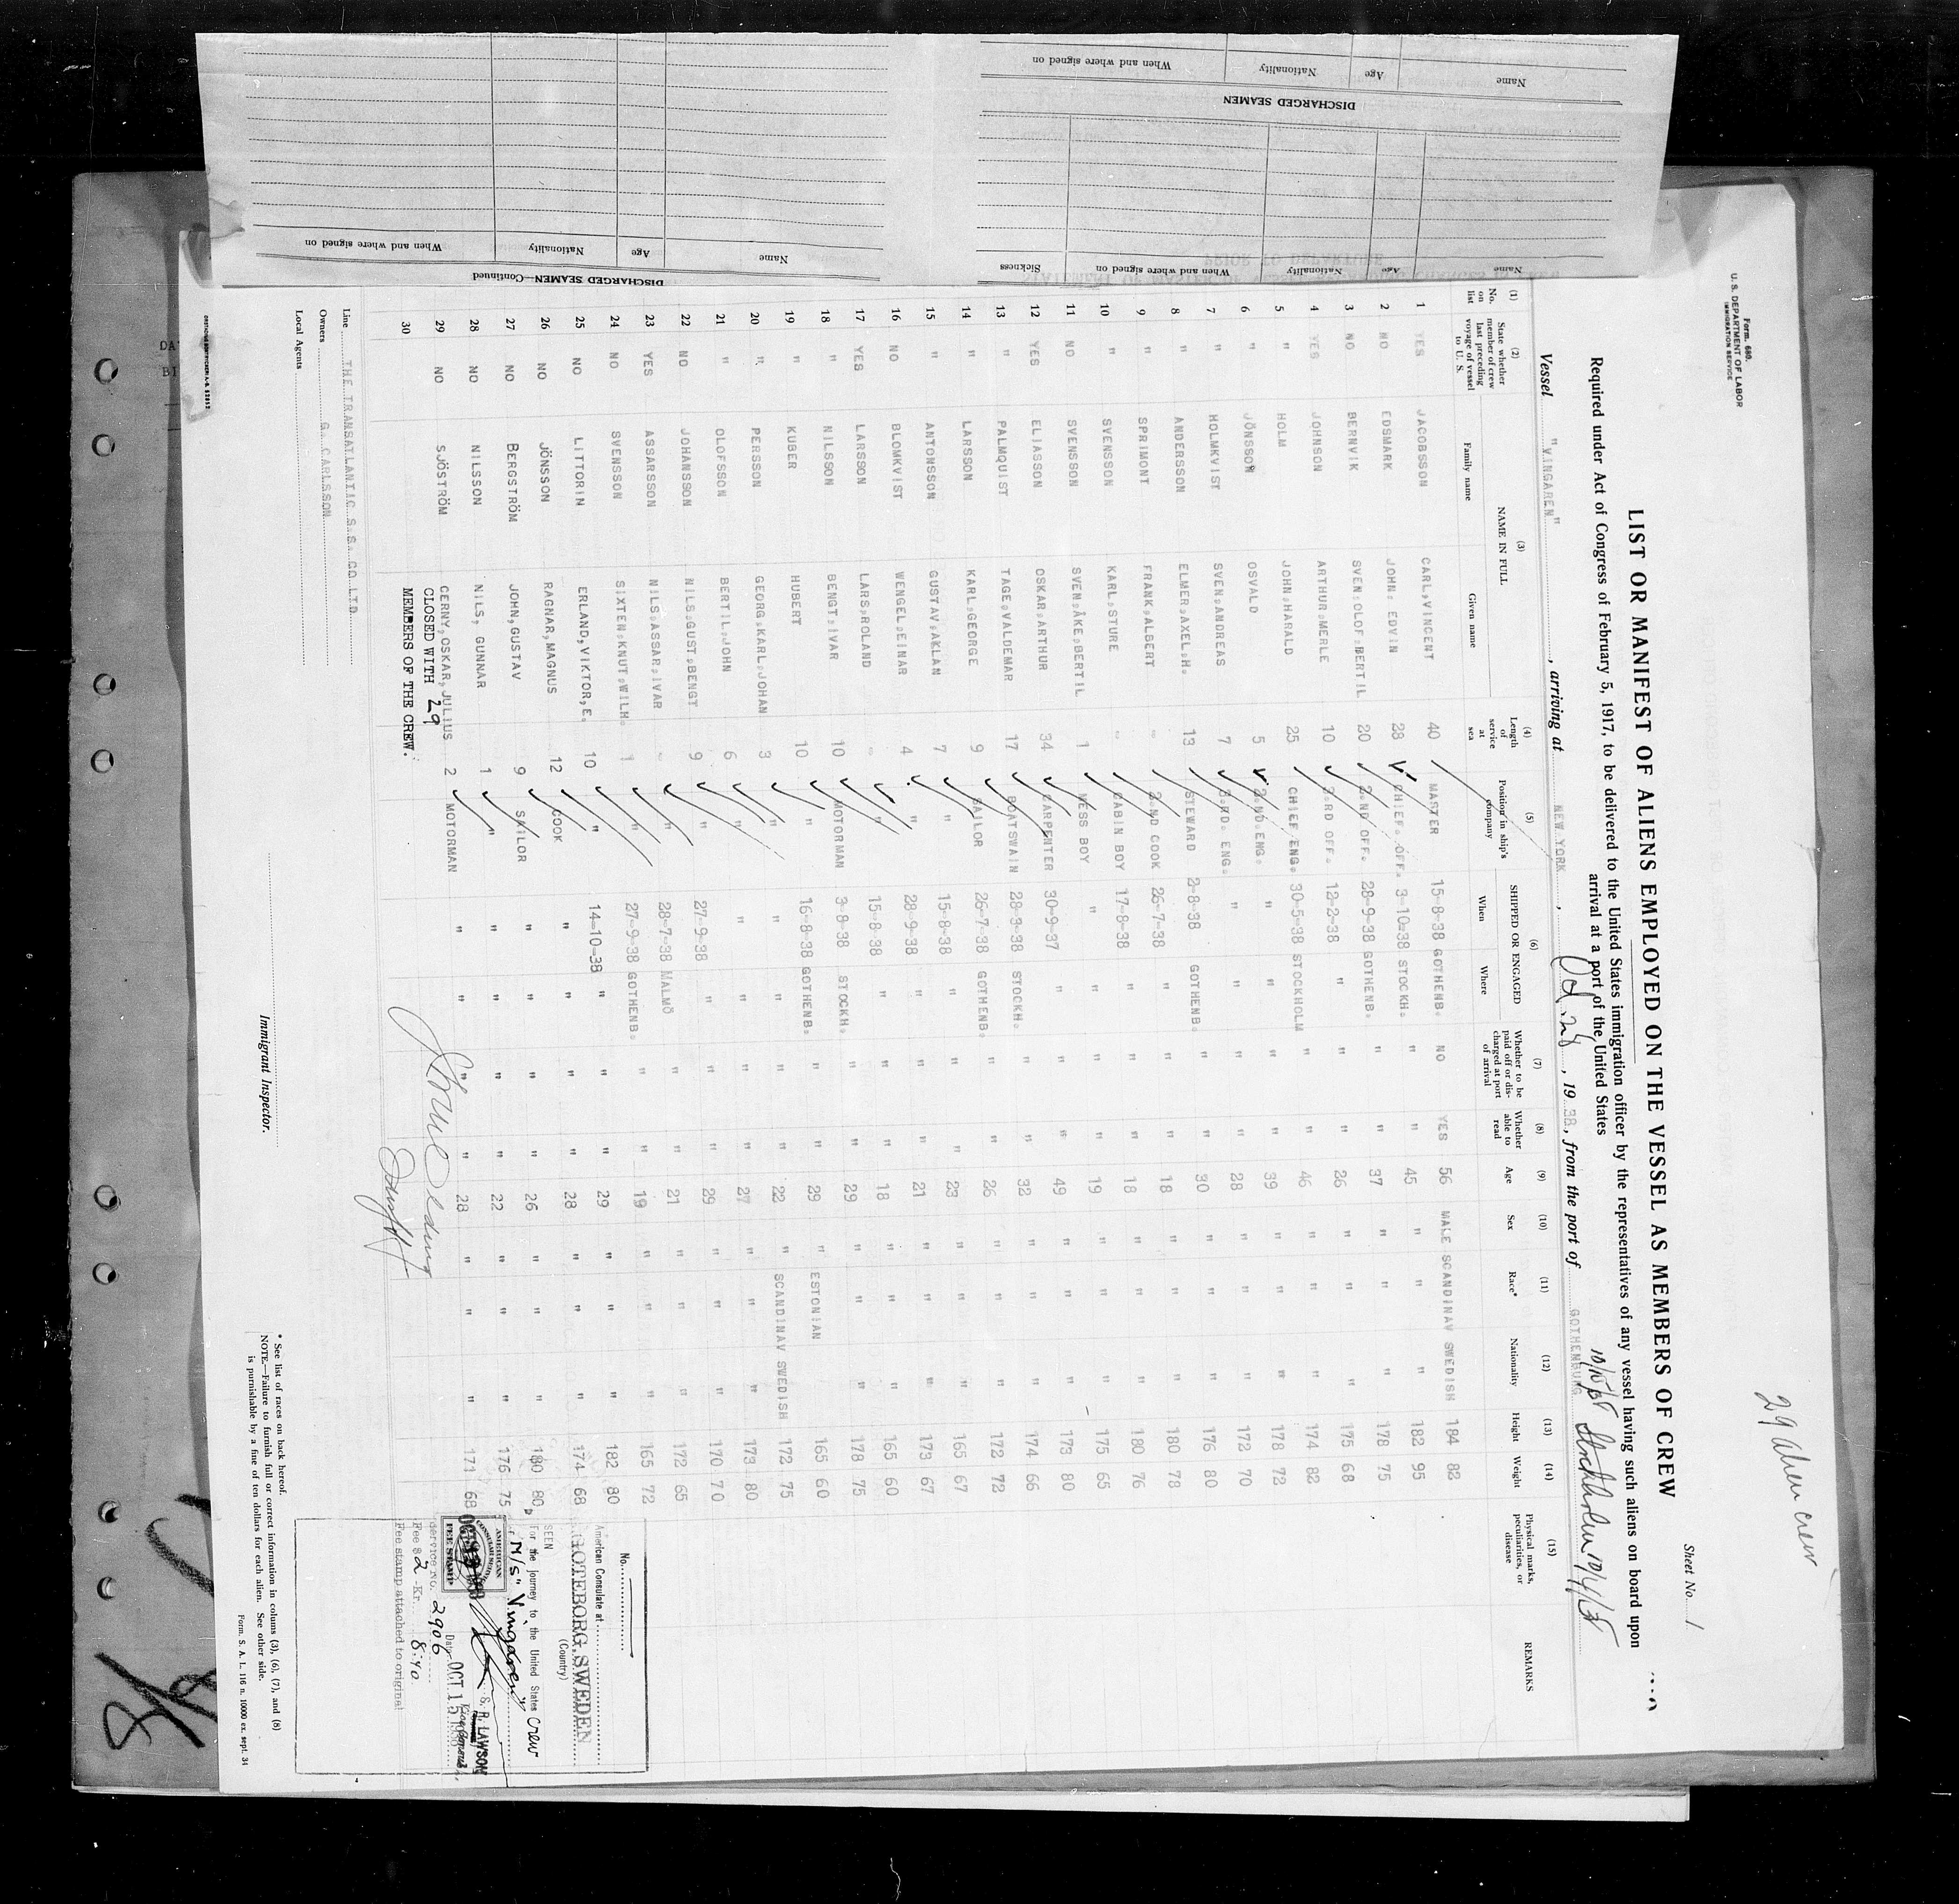 Form 680
U. S. DEPARTMENT OF LABOR
IMMIGRATION SERVICE
29 alien crew
Sheet No. 1
LIST OR MANIFEST OF ALIENS EMPLOYED ON THE VESSEL AS MEMBERS OF CREW
Required under Act of Congress of February 5, 1917, to be delivered to the United States immigration officer by the representatives of any vessel having such aliens on board upon
arrival at a port of the United States
Vessel "VINGAREN", arriving at NEW YORK, Oct. 28, 1938, from the port of GOTHENBURG 10/15/38 Stockholm
(1) (2) (3) (4) (5) (6) (7) (8) (9) (10) (11) (12) (13) (14) (15)
No. on list State whether member of crew last preceding voyage of vessel to U. S. NAME IN FULL Family name Given name Length of service at sea Position in ship's company SHIPPED OR ENGAGED When Where Whether to be paid off or discharged at port of arrival Whether able to read Age Sex Race* Nationality Height Weight Physical marks, peculiarities, or disease REMARKS
1 YES JACOBSSON CARL, VINCENT 40 MASTER 15-8-38 GOTHENB. NO YES 56 MALE SCANDINAV SWEDISH 184 82
2 NO EDSMARK JOHN, EDVIN 28 CHIEF. OFF. 3-10-38 STOCKH. " " 45 " " " 182 95
3 NO BERNVIK SVEN, OLOF, BERTIL 20 2.ND OFF. 28-9-38 GOTHENB. " " 37 " " " 178 75
4 YES JOHNSON ARTHUR, MERLE 10 3.RD OFF. 12-2-38 " " " 26 " " " 175 68
5 " HOLM JOHN, HARALD 25 CHIEF ENG. 30-5-38 STOCKHOLM " " 46 " " " 174 82
6 " JÖNSSON OSVALD 5 2.ND ENG. " " " " 39 " " " 178 72
7 " HOLMKVIST SVEN, ANDREAS 7 3.RD. ENG. " " " " 28 " " " 172 70
8 " ANDERSSON ELMER, AXEL, H. 13 STEWARD 2-8-38 GOTHENB. " " 30 " " " 176 80
9 " SPRIMONT FRANK, ALBERT - 2.ND COOK 26-7-38 " " " 18 " " " 180 78
10 " SVENSSON KARL, STURE - CABIN BOY 17-8-38 " " " 18 " " " 180 76
11 NO SVENSSON SVEN, ÅKE, BERTIL 1 MESS BOY " " " " 19 " " " 175 65
12 YES ELIASSON OSKAR, ARTHUR 34 CARPENTER 30-9-37 " " " 49 " " " 173 80
13 " PALMQUIST TAGE, VALDEMAR 17 BOATSWAIN 28-3-38 STOCKH. " " 32 " " " 174 66
14 " LARSSON KARL, GEORGE 9 SAILOR 26-7-38 GOTHENB. " " 26 " " " 172 72
15 " ANTONSSON GUSTAV, AKLAN 7 " 15-8-38 " " " 23 " " " 165 67
16 NO BLOMKVIST WENGEL, EINAR 4 " 28-9-38 " " " 21 " " " 173 67
17 YES LARSSON LARS, ROLAND - " 15-8-38 " " " 18 " " " 165 60
18 " NILSSON BENGT, IVAR 10 MOTORMAN 3-8-38 STOCKH. " " 29 " " " 178 75
19 " KUBER HUBERT 10 " 16-8-38 GOTHENB. " " 29 " ESTONIAN 165 60
20 " PERSSON GEORG, KARL, JOHAN 3 " " " " " 22 " SCANDINAV SWEDISH 172 75
21 " OLOFSSON BERTIL, JOHN 6 " " " " " 27 " " " 173 80
22 NO JOHANSSON NILS, GUST, BENGT 9 " 27-9-38 " " " 29 " " " 170 70
23 YES ASSARSSON NILS, ASSAR, IVAR - " 28-7-38 MALMÖ " " 21 " " " 172 65
24 NO SVENSSON SIXTEN, KNUT, WILH. 1 " 27-9-38 GOTHENB. " " 19 " " " 165 72
25 NO LITTORIN ERLAND, VIKTOR, E. 10 " 14-10-38 " " " 29 " " " 182 80
26 NO JÖNSSON RAGNAR, MAGNUS 12 COOK " " " " 28 " " " 174 68
27 NO BERGSTRÖM JOHN, GUSTAV 9 SAILOR " " " " 26 " " " 180 80
28 NO NILSSON NILS, GUNNAR 1 " " " " " 22 " " " 176 75
29 NO SJÖSTRÖM CERNY, OSKAR, JULIUS 2 MOTORMAN " " " " 28 " " " 171 68
30
CLOSED WITH 29
MEMBERS OF THE CREW.
Line THE TRANSATLANTIC S.S. CO LTD.
Owners G. CARLSSON
Local Agents
Immigrant Inspector.
* See list of races on back hereof.
NOTE.—Failure to furnish full or correct information in colums (3), (6), (7), and (8)
is punishable by a fine of ten dollars for each alien. See other side.
Form. S. A. L. 116 n. 10000 ex. sept. 34
No.
American Consulate at
GOTEBORG, SWEDEN
(Country)
SEEN
For the journey to the United States crew
M/S "Vingaren"
AMERICAN
CONSULAR SERVICE
FEE STAMP
S. R. LAWSON
Service No. 2906
Date OCT 15 1938
Fee $ 2 - Kr. 8:40
Fee stamp attached to original
DISCHARGED SEAMEN
Name Age Nationality When and where signed on
Name Age Nationality When and where signed on Sickness
PRIOR TO DEPARTURE
DISCHARGED SEAMEN—Continued
Name Age Nationality When and where signed on